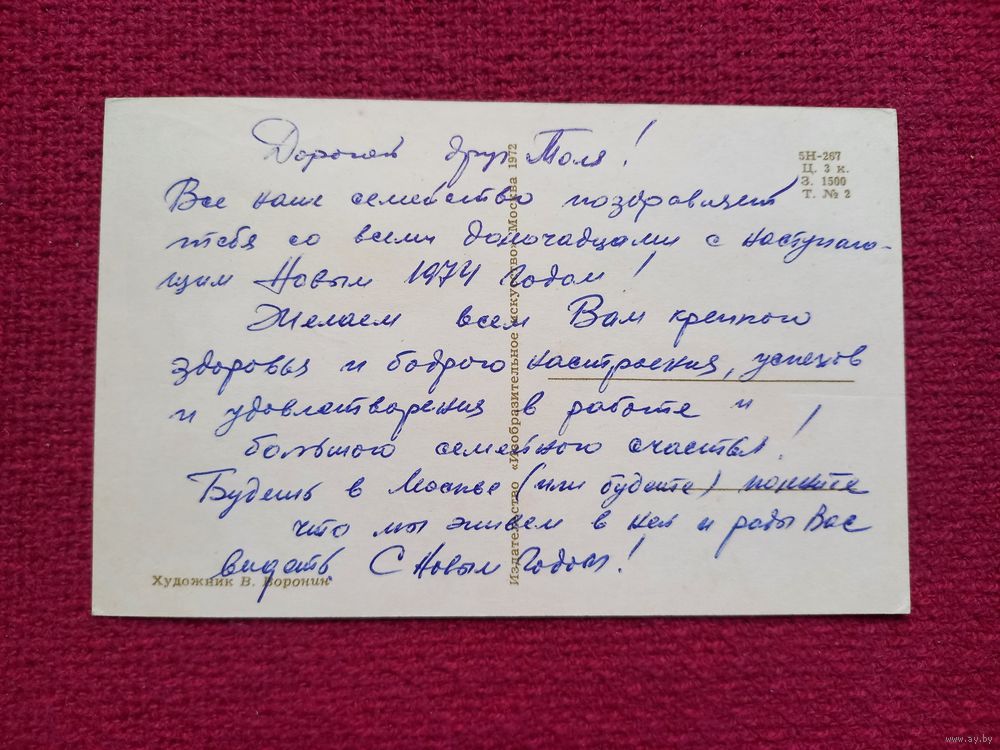 Дорогой друг Толя!
Все наше семейство поздравляет
тебя со всеми домочадцами с наступаю-
щим Новым 1974 годом!
Желаем всем Вам крепкого
здоровья и бодрого настроения, успехов
и удовлетворения в работе и
большого семейного счастья!
Будешь в Москве (или будете) помните
что мы живем в ней и рады Вас
видеть С Новым Годом!
5Н-267
Ц. 3 к.
З. 1500
Т. № 2
Издательство «Изобразительное искусство» Москва 1972
Художник В. Воронин
www.ay.by